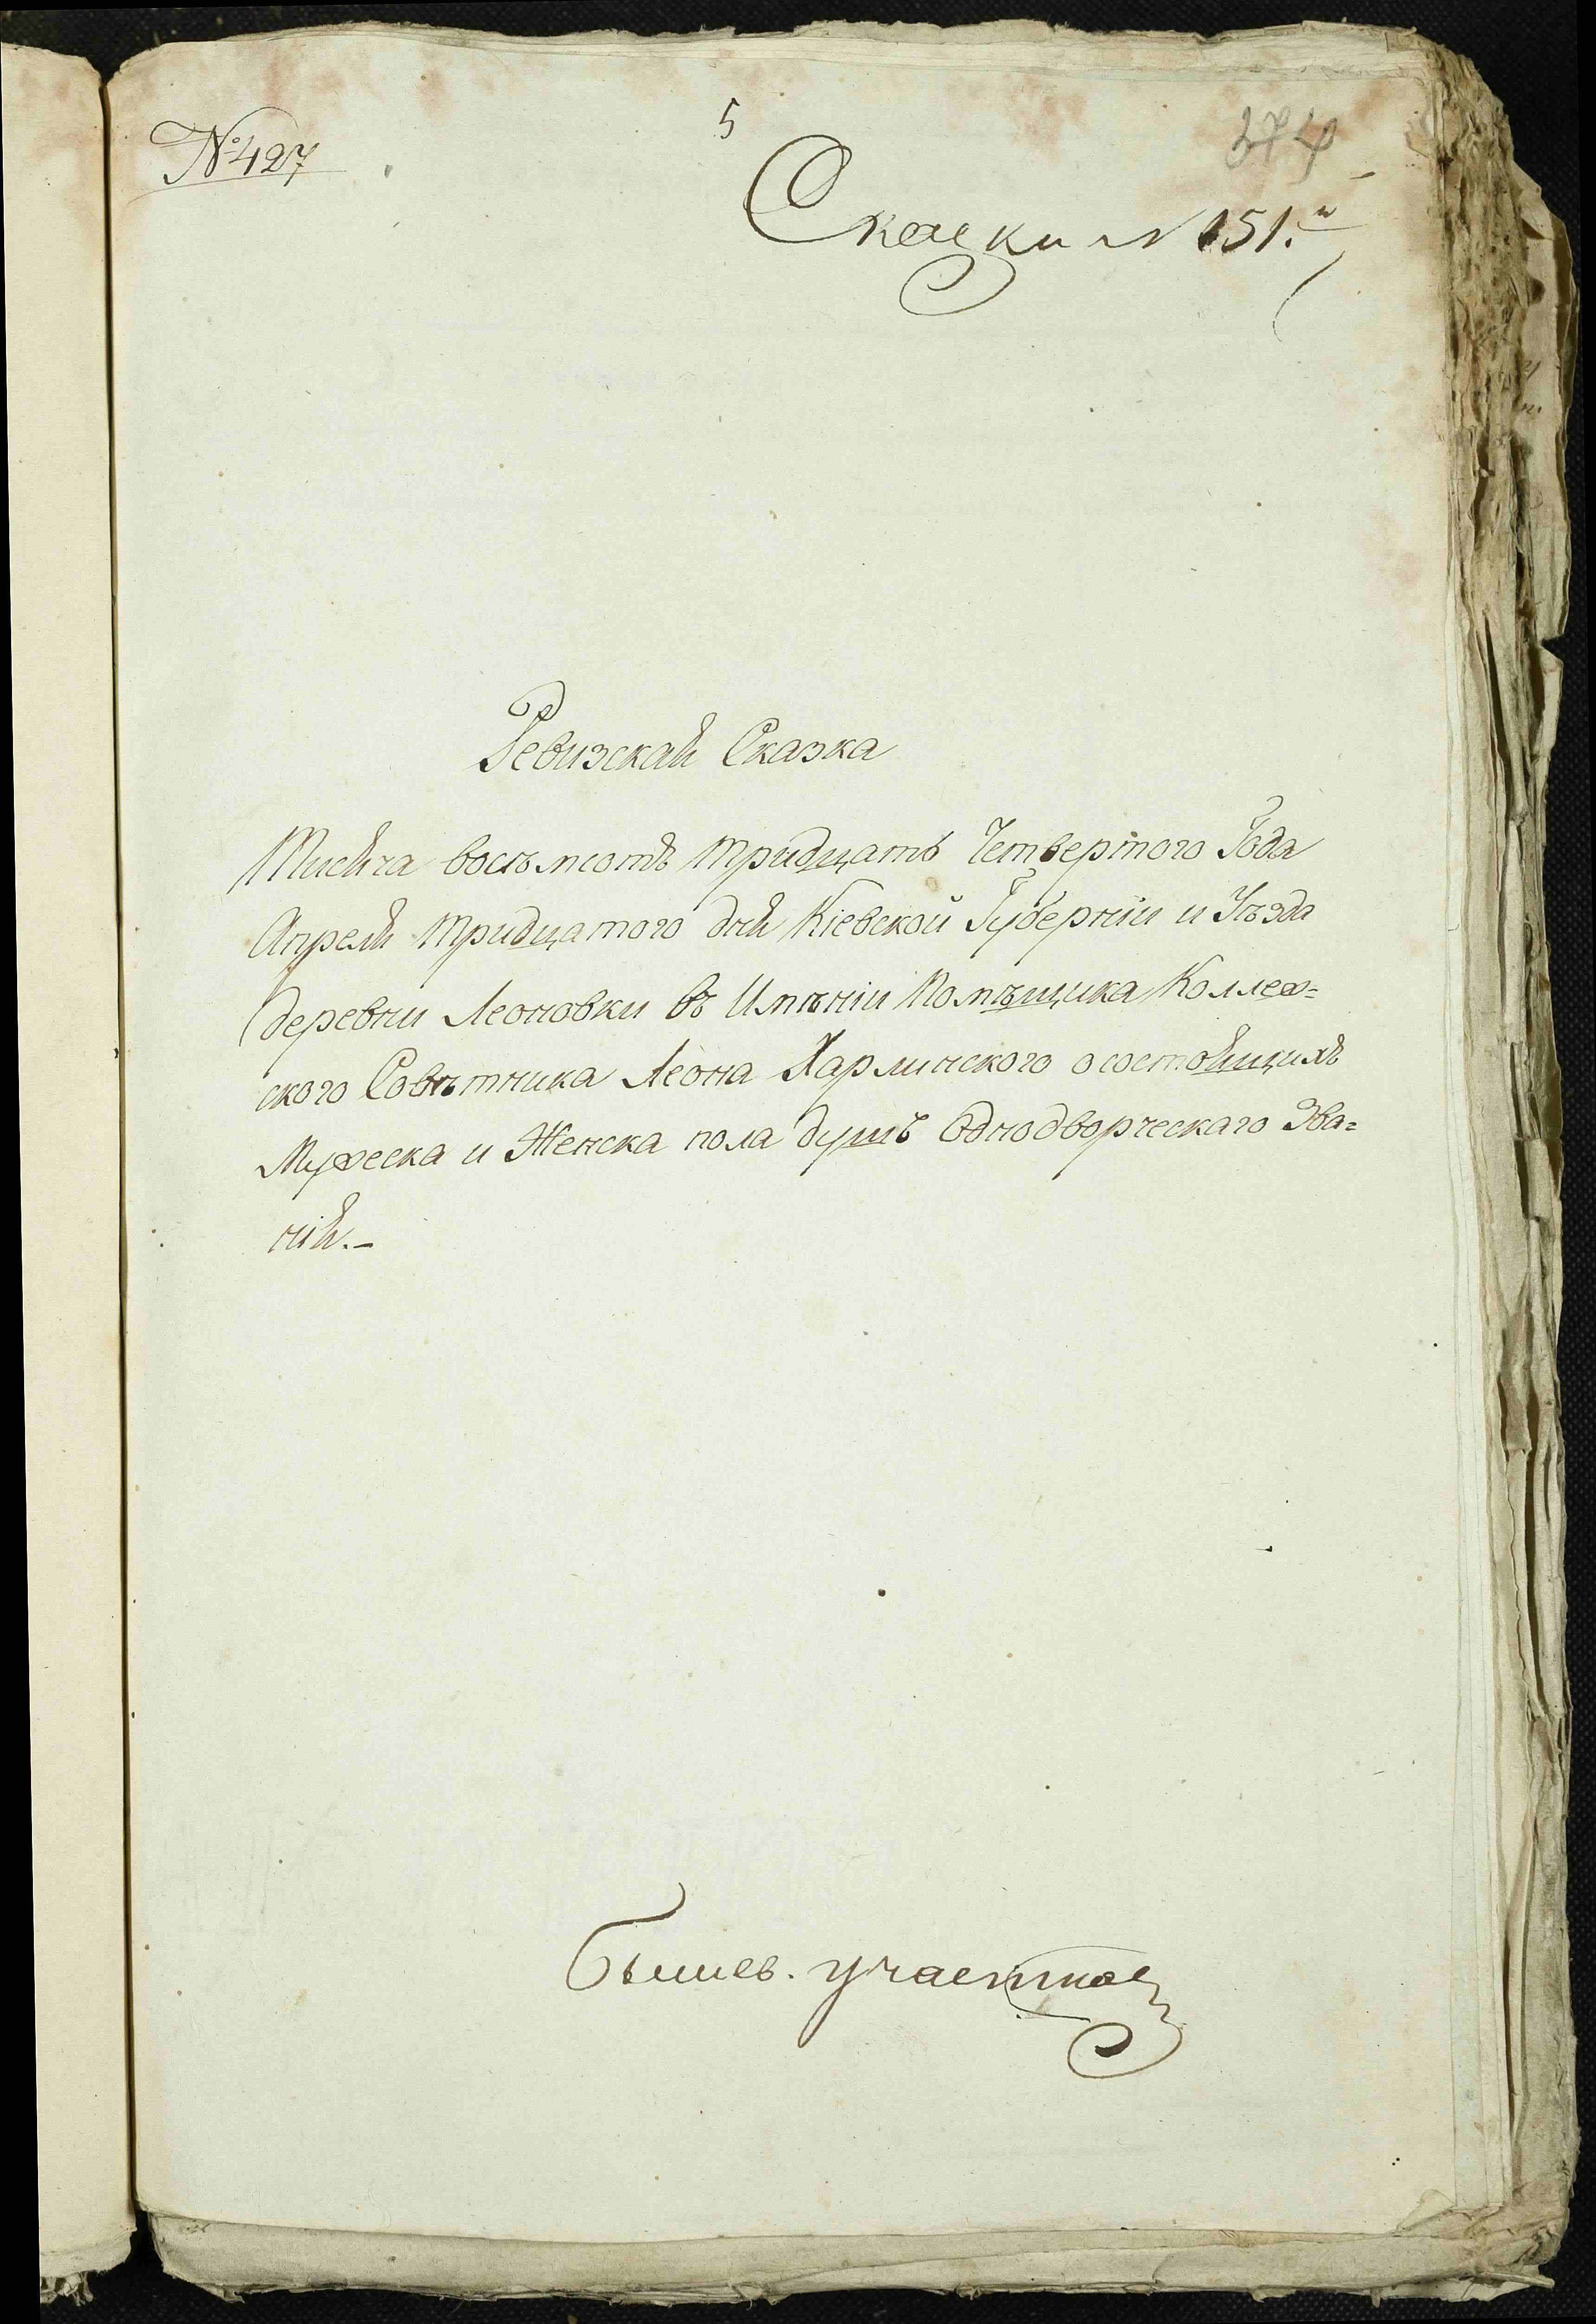 № 427
5
374
Сказки № 151.й
Ревизская Сказка
Тисяча восѣмсотъ тридцать Четвертого Года
Апреля тридцатого дня Кіевской Губерніи и Уѣзда
деревни Леоновки въ Имѣніи Помѣщика Коллеж=
ского Совѣтника Леона Харлинского осостоящихъ
Мужеска и Женска пола душъ Однодворческаго Зва=
нія.–
Бышев. участка